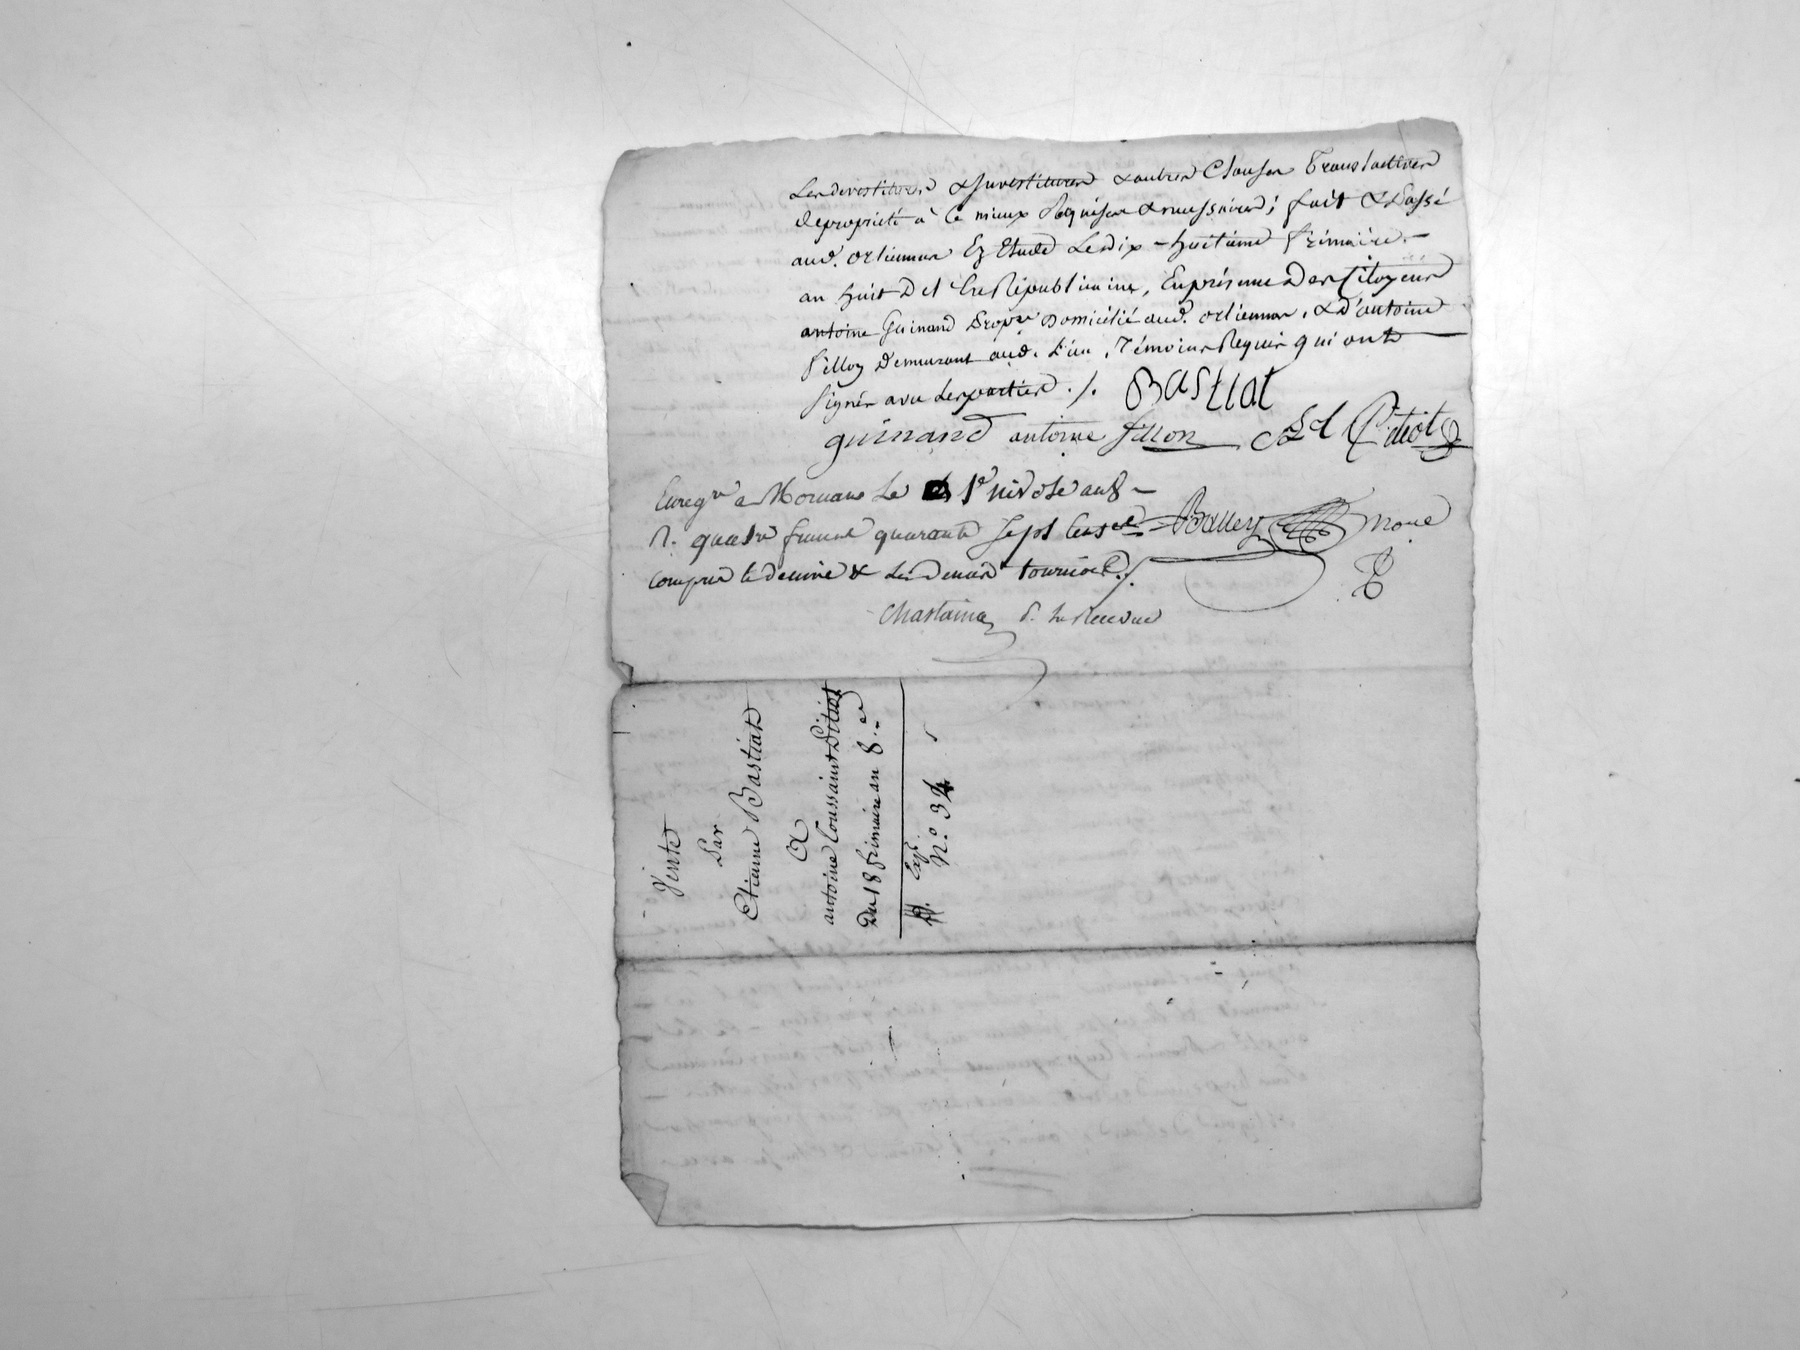 Les devestitures & Investitures & autres Clauses Translatives
de propriété à ce mieux Requises & necessaires; fait & Passé
aud. orlienas Ez Etude Le dix-huitieme frimaire.
an huit De l'Ere Républicaine, En présence Des Citoyens
antoine Guinand Propre Domicilié aud. orlienas, & d'antoine
fillon Demeurant aud. Lieu, Témoins Requis qui ont
signés avec les parties ./. Bastiat
guinand antoine fillon Pitiot
Enregré a Mornant Le 1er nivose an 8
R. quatre francs quarante sept Cent Balley nore
compris le decime & les deniers tournois ./.
Chastaing
Vente
Par
Etienne Bastiat
A
antoine Toussaint Pitiot
Du 18 frimaire an 8
Exp.
N.o 34